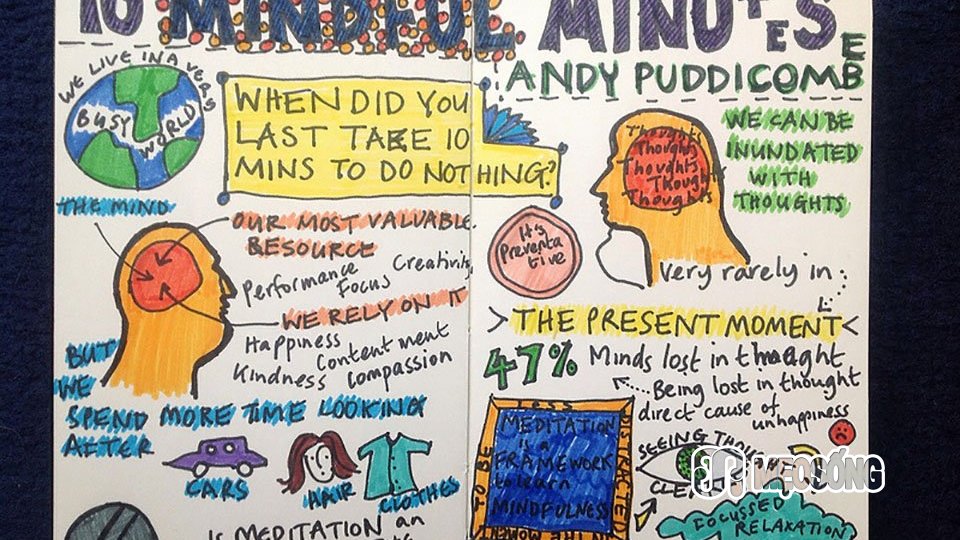 10 MINDFUL MINUTES
ANDY PUDDICOMBE
WE LIVE IN A VERY
BUSY
WORLD
WHEN DID YOU
LAST TAKE 10
MINS TO DO NOTHING?
THE MIND
OUR MOST VALUABLE
RESOURCE
Performance
Creativity
Focus
WE RELY ON IT
Happiness
Contentment
Kindness
Compassion
BUT
WE
SPEND MORE TIME LOOKING
AFTER
CARS
HAIR
CLOTHES
IS MEDITATION an
Thoughts
Thoughts
Thoughts
Thoughts
Thoughts
WE CAN BE
INUNDATED
WITH
THOUGHTS
It's
Preventa
tive
Very rarely in :
THE PRESENT MOMENT
47% Minds lost in thought
Being lost in thought
direct cause of
unhappiness
less
DISTRACTED
IN THE MOMENT
TO BE
MEDITATION
is a
FRAMEWORK
to learn
MINDFULNESS
SEEING
FOCUSSED
RELAXATION